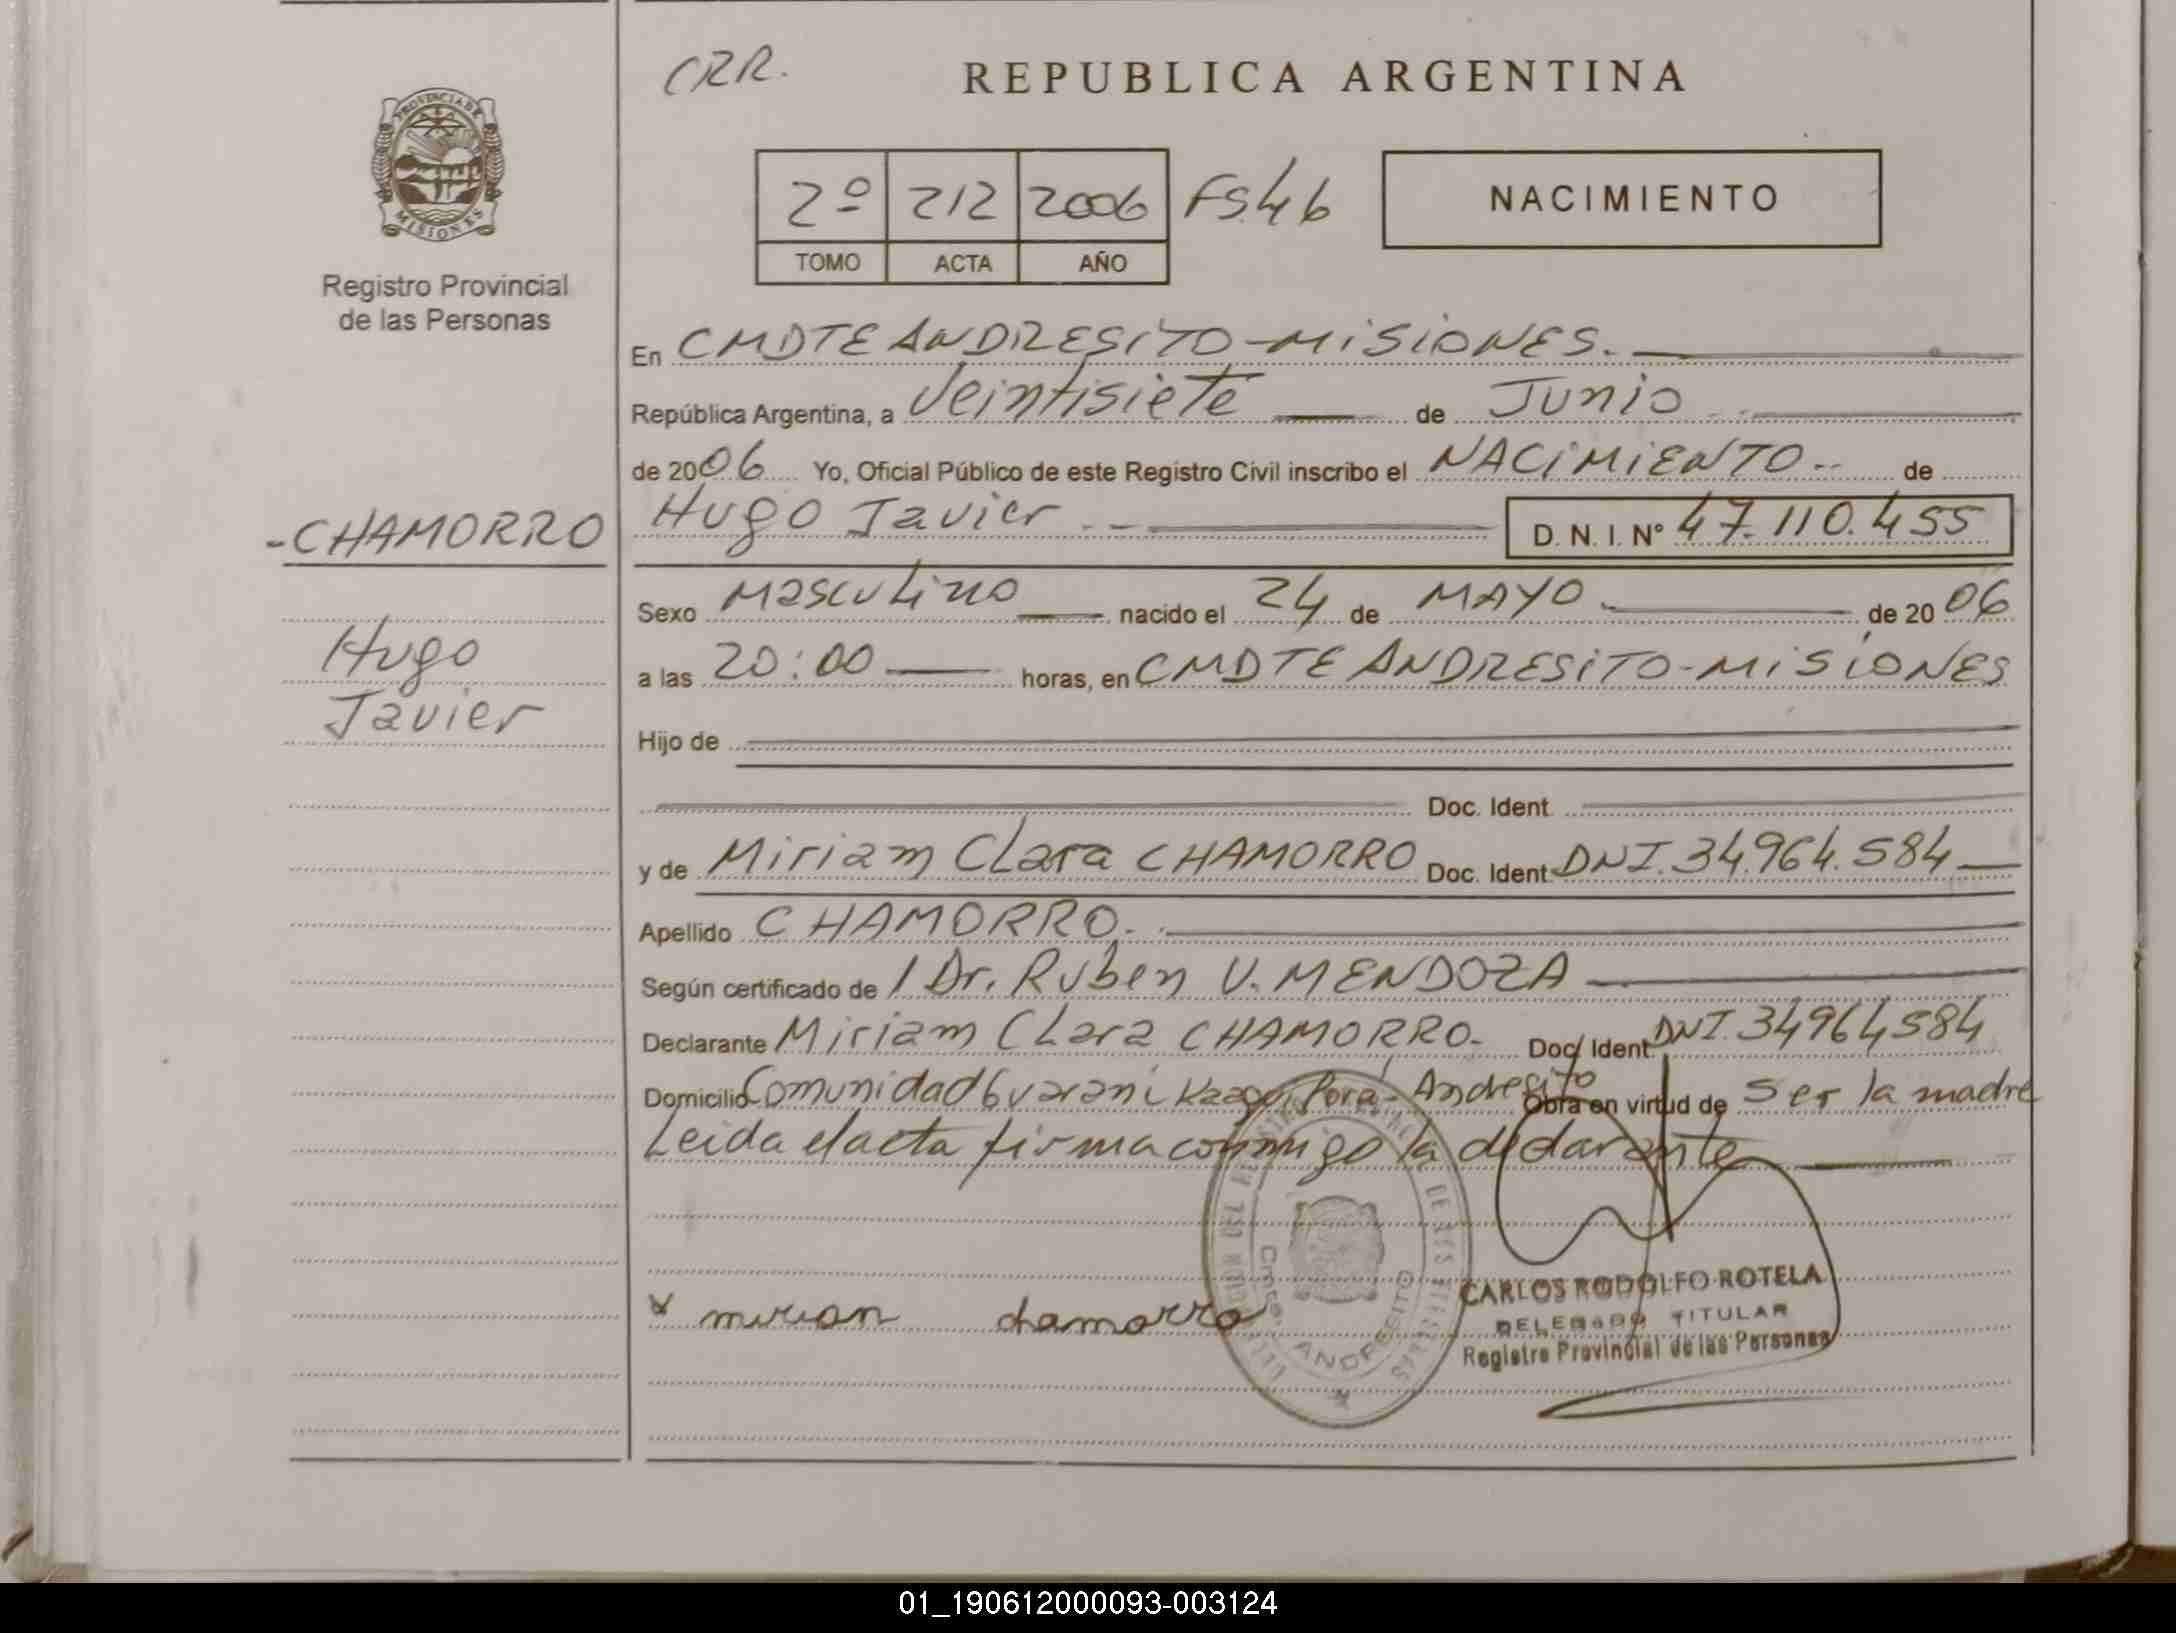 CRR.
REPUBLICA ARGENTINA
PROVINCIA DE
MISIONES
Registro Provincial
de las Personas
2º 212 2006 FS.46
TOMO ACTA AÑO
NACIMIENTO
En CMDTE ANDRESITO-MISIONES.
República Argentina, a Veintisiete de Junio
de 2006 Yo, Oficial Público de este Registro Civil inscribo el NACIMIENTO.. de
-CHAMORRO
Hugo Javier D. N. I. Nº 47.110.455
Sexo Masculino nacido el 24 de MAYO de 2006
Hugo
Javier
a las 20:00 horas, en CMDTE ANDRESITO-MISIONES
Hijo de
Doc. Ident.
y de Miriam Clara CHAMORRO Doc. Ident. DNI.34.964.584
Apellido CHAMORRO.
Según certificado de / Dr. Ruben V. MENDOZA
Declarante Miriam Clara CHAMORRO- Doc. Ident. DNI.34964584
Domicilio Comunidad Guarani Porá- Andresito Obra en virtud de Ser la madre
Leida el acta firma conmigo la declarante
mirian chamorro
Cmte. ANDRESITO
CARLOS RODOLFO ROTELA
DELEGADO TITULAR
Registro Provincial de las Personas
01_190612000093-003124